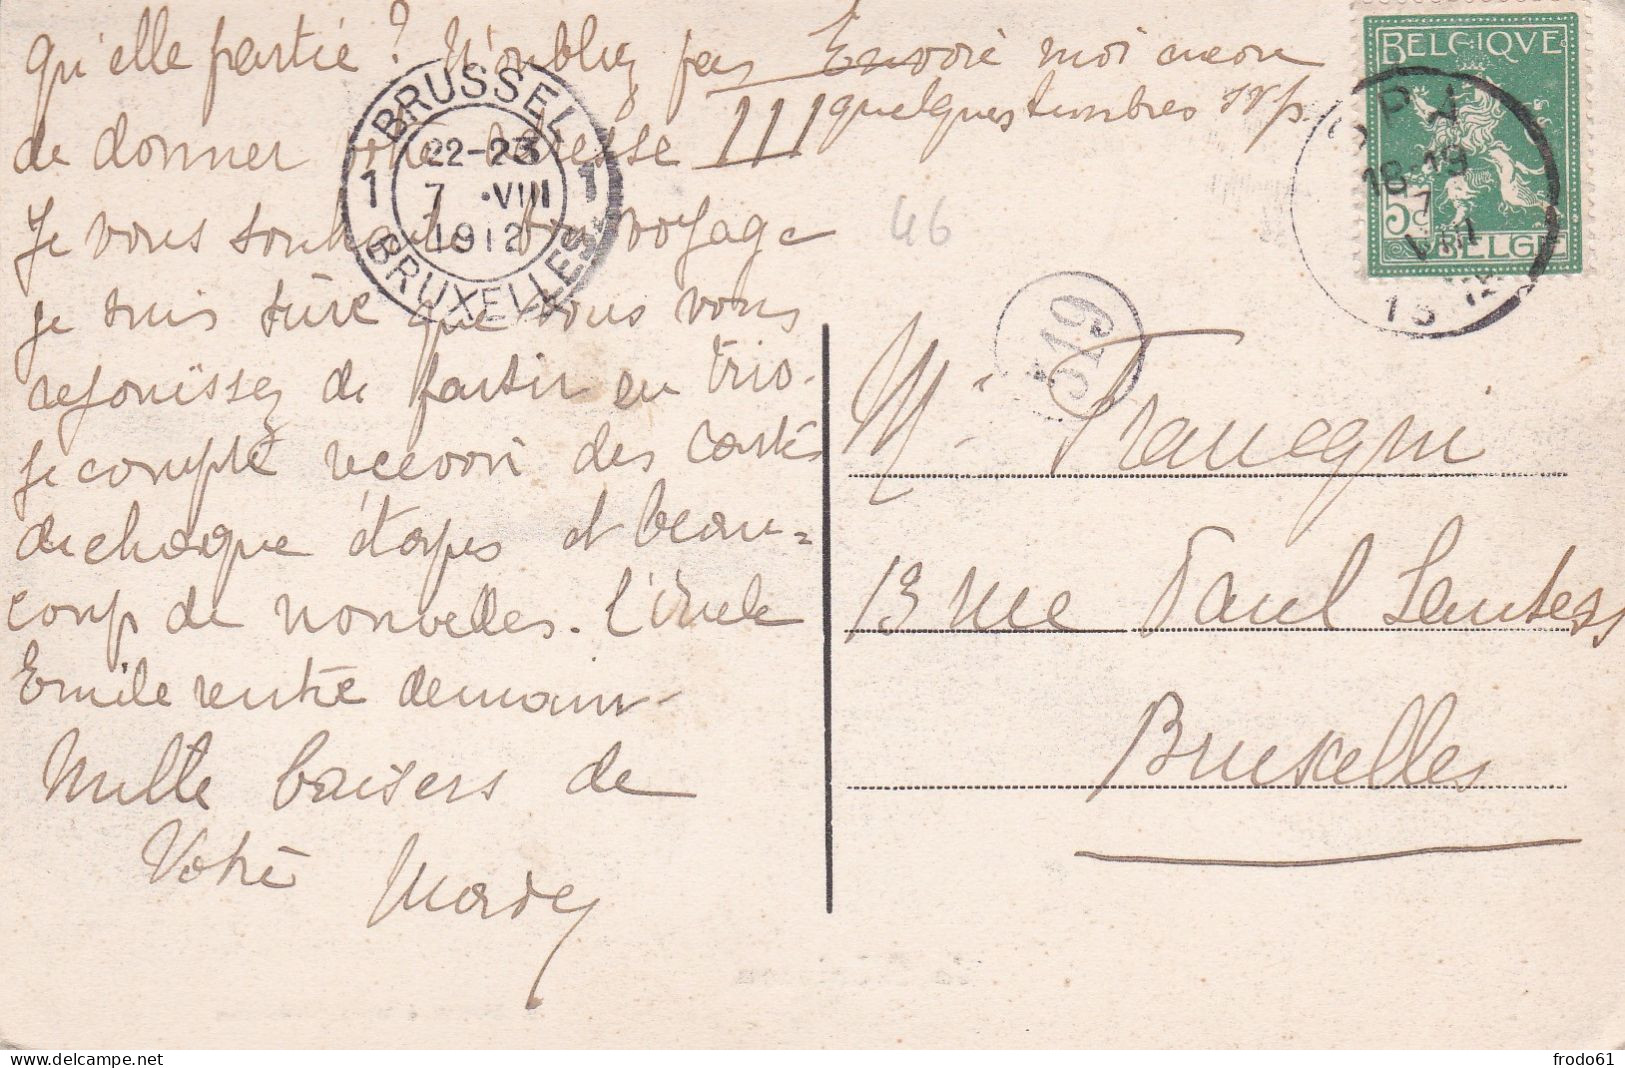 qu'elle partie ? N'oubliez pas Envoie moi encore
quelques timbres svp
de donner votre adresse !!!
Je vous souhaite bon voyage
je suis sûre que vous vous
rejouïssez de partir en trio.
Je compte recevoir des cartes
de chaque étapes et beau=
coup de nouvelles. L'oncle
Emile rentre demain
Mille baisers de
Votre Mary
BRUSSEL 1
22-23
7 VIII
1912
1 BRUXELLES
46
319
BELGIQUE
5c
BELGIE
18-19
7
VIII
Mr Francqui
13 rue Paul Lauters
Bruxelles
frodo61